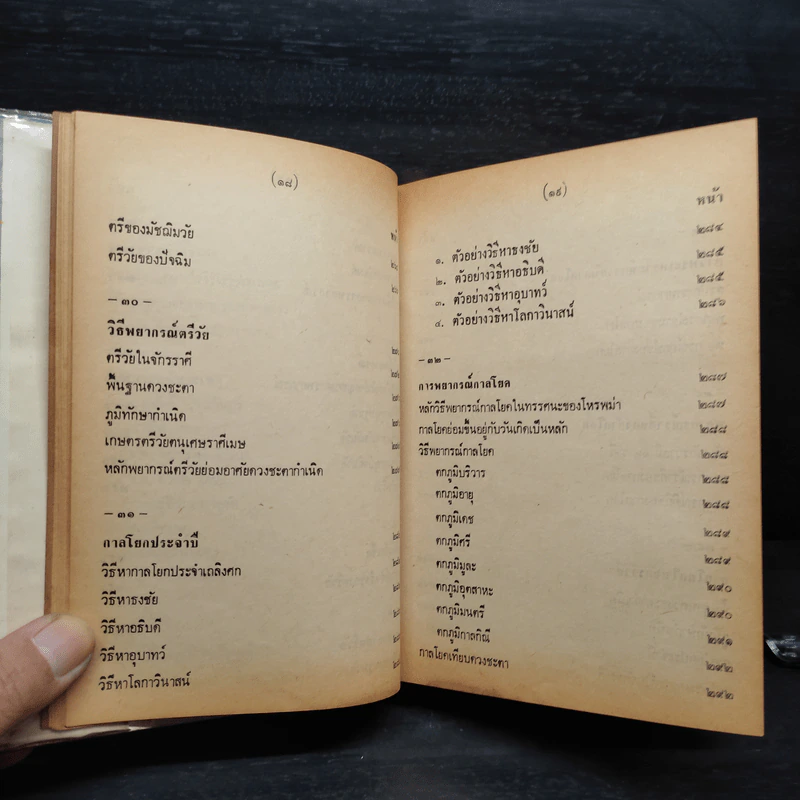 (๑๘)
ตรีของมัชฌิมวัย
ตรีวัยของปัจฉิม
— ๓๐ —
วิธีพยากรณ์ตรีวัย
ตรีวัยในจักรราศี
พื้นฐานดวงชะตา
ภูมิทักษากำเนิด
เกษตรตรีวัยตนุเศษราศีเมษ
หลักพยากรณ์ตรีวัยย่อมอาศัยดวงชะตากำเนิด
— ๓๑ —
กาลโยกประจำปี
วิธีหากาลโยกประจำเถลิงศก
วิธีหาธงชัย
วิธีหาอธิบดี
วิธีหาอุบาทว์
วิธีหาโลกาวินาสน์
(๑๙)
หน้า
๑. ตัวอย่างวิธีหาธงชัย ๒๘๔
๒. ตัวอย่างวิธีหาอธิบดี ๒๘๕
๓. ตัวอย่างวิธีหาอุบาทว์ ๒๘๕
๔. ตัวอย่างวิธีหาโลกาวินาสน์ ๒๘๖
— ๓๒ —
การพยากรณ์กาลโยค ๒๘๗
หลักวิธีพยากรณ์กาลโยคในทรรศนะของโหรพม่า ๒๘๗
กาลโยคย่อมขึ้นอยู่กับวันเกิดเป็นหลัก ๒๘๘
วิธีพยากรณ์กาลโยค ๒๘๘
ตกภูมิบริวาร ๒๘๘
ตกภูมิอายุ ๒๘๘
ตกภูมิเดช ๒๘๙
ตกภูมิศรี ๒๘๙
ตกภูมิมูละ ๒๙๐
ตกภูมิอุตสาหะ ๒๙๐
ตกภูมิมนตรี ๒๙๑
ตกภูมิกาลกิณี ๒๙๒
กาลโยคเทียบดวงชะตา ๒๙๒